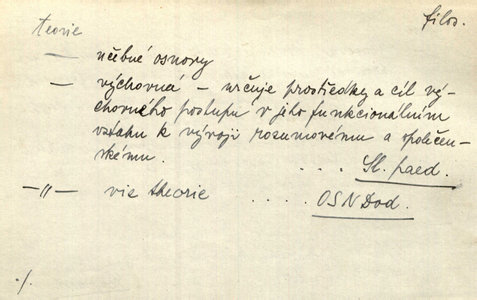 teorie filos.
— učebné osnovy
— výchovná – určuje prostředky a cíl vý-
chovného postupu v jeho funkcionálním
vztahu k vývoji rozumovému a společen-
skému.
. . . . Sl. paed.
—〃— viz theorie . . . . . OSNDod.
./.